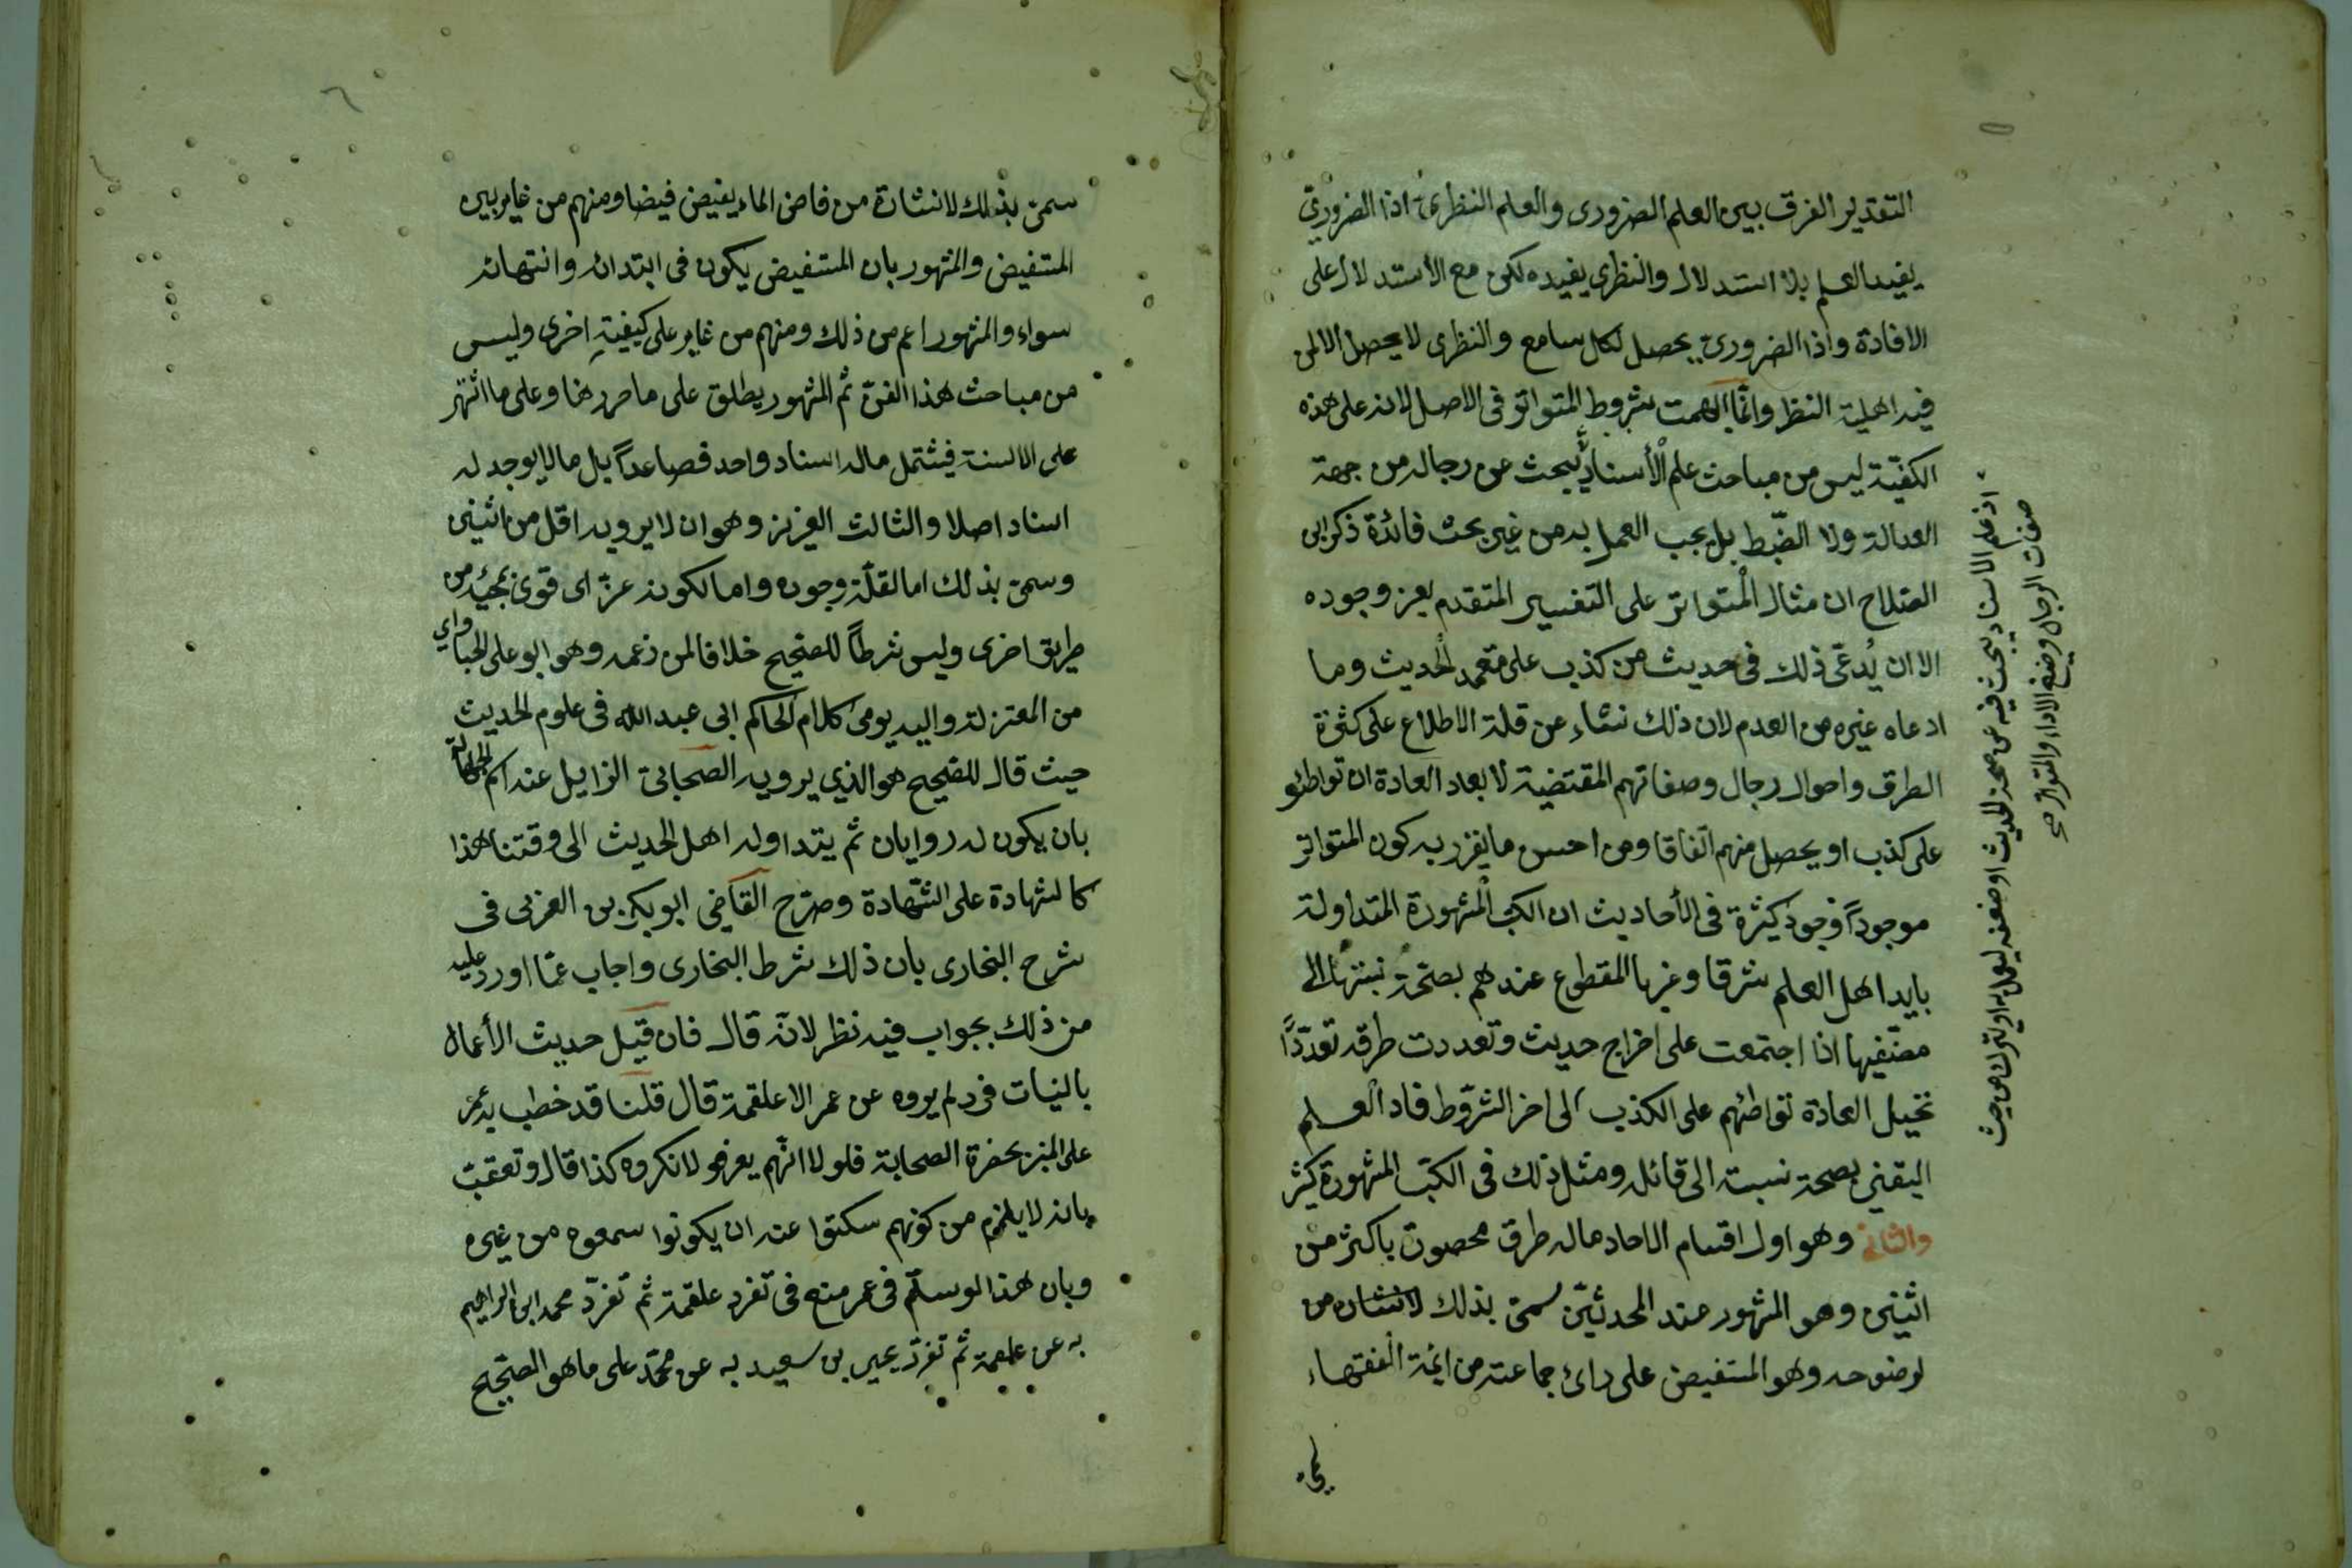 التقدير الفرق بين العلم الضرورى والعلم النظرى اذا الضرورىّ
يفيد العلم بلا استدلال والنظرى يفيده لكن مع الاستدلال على
الافادة واذا الضرورىّ يحصل لكل سامع والنظرى لا يحصل الا لمن
فيه اهلية النظر وانّما ابهمت شروط المتواتر فى الاصل لانه على هذه
الكفيّة ليس من مباحث علم الأسناد يبحث عن رجاله من جهة
العدالة ولا الضّبط بل يجب العمل به من غير بحث فائدة ذكر ابن
الصّلاح ان مثال المتواتر على التفسير المتقدم يعز وجوده
الا ان يُدعّى ذلك فى حديث من كذب على متعمد الحديث وما
ادعاه غيره من العدم لان ذلك نشاء عن قلة الاطلاع على كثرة
الطرق واحوال رجال وصفاتهم المقتضية لابعاد العادة ان تواطئو
على كذب او يحصل منهم اتفاقا ومن احسن ما يقرر به كون المتواتر
موجوداً وجود كثرة فى الأحاديث ان الكتب المشهورة المتداولة
بايد اهل العلم شرقا وغربا المقطوع عندهم بصحّة نسبتها الى
مصنّفيها اذا اجتمعت على اخراج حديث وتعددت طرقه تعدّداً
تحيل العادة تواطئهم على الكذب الى اخر الشرّوط فاد العلم
اليقنى بصحة نسبته الى قائله ومثل ذلك فى الكتب المشهورة كثر
والثانى وهو اول اقسام الاحاد ماله طرق محصورة باكثر من
اثنين وهو المشهور عند المحدثيّن سمىّ بذلك
لوضوحه وهو المستفيض على رائ جماعته من ائمة الفقهاء
سمىّ
اذ علم الاسناد يبحث فيه عن صحة الحديث او ضعفه ليعمل به او يترك من حيث
صفات الرجال وصيغ الاداء والمتواتر صح
سمىّ بذلك لانتشارة من فاض الماء يفيض فيضا ومنهم من غاير بين
المستفيض والمشهور بان المستفيض يكون فى ابتدائه وانتهائه
سواء والمشهور اعم من ذلك ومنهم من غاير على كيفيةٍ اخرى وليس
من مباحث هذا الفنّ ثم المشهور يطلق على ما حرر هنا وعلى ما اشتهر
على الالسنة فيشتمل ماله اسناد واحد فصاعداً بل ما لا يوجد له
اسناد اصلا والثالث العزيز وهو ان لا يرويه اقل من اثنين
وسمىّ بذلك اما لقلّة وجوده واما لكونه عزّ اى قوىّ بمجيئه من
طريق اخرى وليس شرطاً للصّحيح خلافا لمن زعمه وهو ابو على الجباواى
من المعتزلة واليه يومئ كلام الحاكم ابى عبد الله فى علوم الحديث
حيث قال للصّحيح هو الذي يرويه الصحابىّ الزايل عنه اسم الجهالة
بان يكون له روايان ثم يتداوله اهل الحديث الى وقتنا هذا
كالشهادة على الشّهادة وصرّح القاضى ابو بكر بن العربى فى
شرح البخارى بان ذلك شرط البخارى واجاب عمّا اورد عليه
من ذلك بجواب فيه نظر لانّه قال فان قيل حديث الأعمال
بالنيات فرد لم يروه عن عمر الا علقمة قال قلنا قد خطب به عمر
على المنبر بحضرة الصحابة فلولا انّهم يعرفو لانكروه كذا قال وتعقبت
بانه لا يلزم من كونهم سكتوا عنه ان يكونوا سمعوه من غيره
وبان هذا لو سلّم فى عمر منع فى تفرد علقمة ثم تفرّد محمد ابن ابراهيم
به عن علقمة ثم تفرّد يحيى بن سعيد به عن محمّد على ما هو الصّحيح